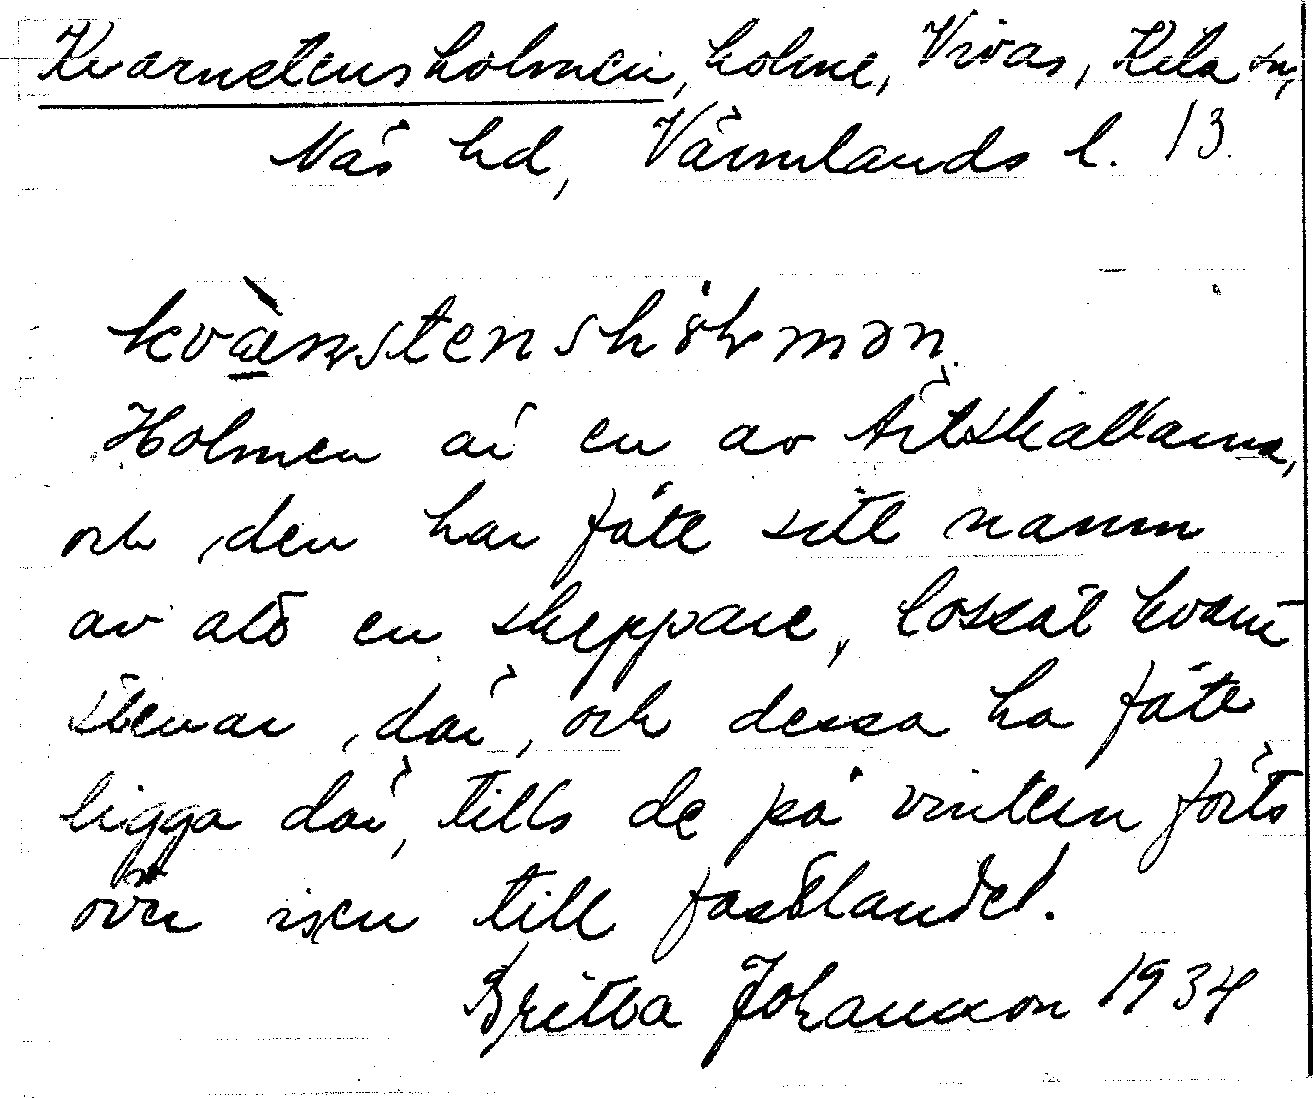 Kvarnstensholmen, holme, Vivas, Kila sn,
Näs hd, Värmlands l. 13.
Holmen är en av Ärtskallarna,
och den har fått sitt namn
av att en skeppare, lossat kvarn-
stenar där, och dessa ha fått
ligga där, tills de på vintern förts
över isen till fastlandet.
Britta Johansson 1934